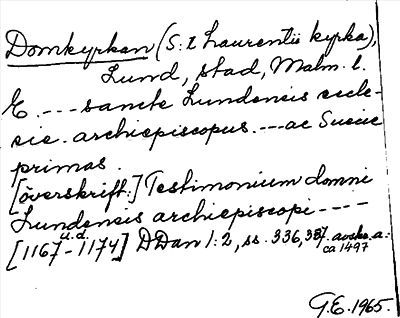 Domkyrkan (S:t Laurentii kyrka),
Lund, stad, Malm. l.
E. --- sancte Lundensis eccle-
sie. archiepiscopus. --- ac Suecie
primas.
[överskrift:] Testimonium domni
Lundensis archiepiscopi ----
[1167 - 1174] u.d. DDan 1:2, ss. 336, 337. avskr. a:
ca 1497
G.E. 1965.